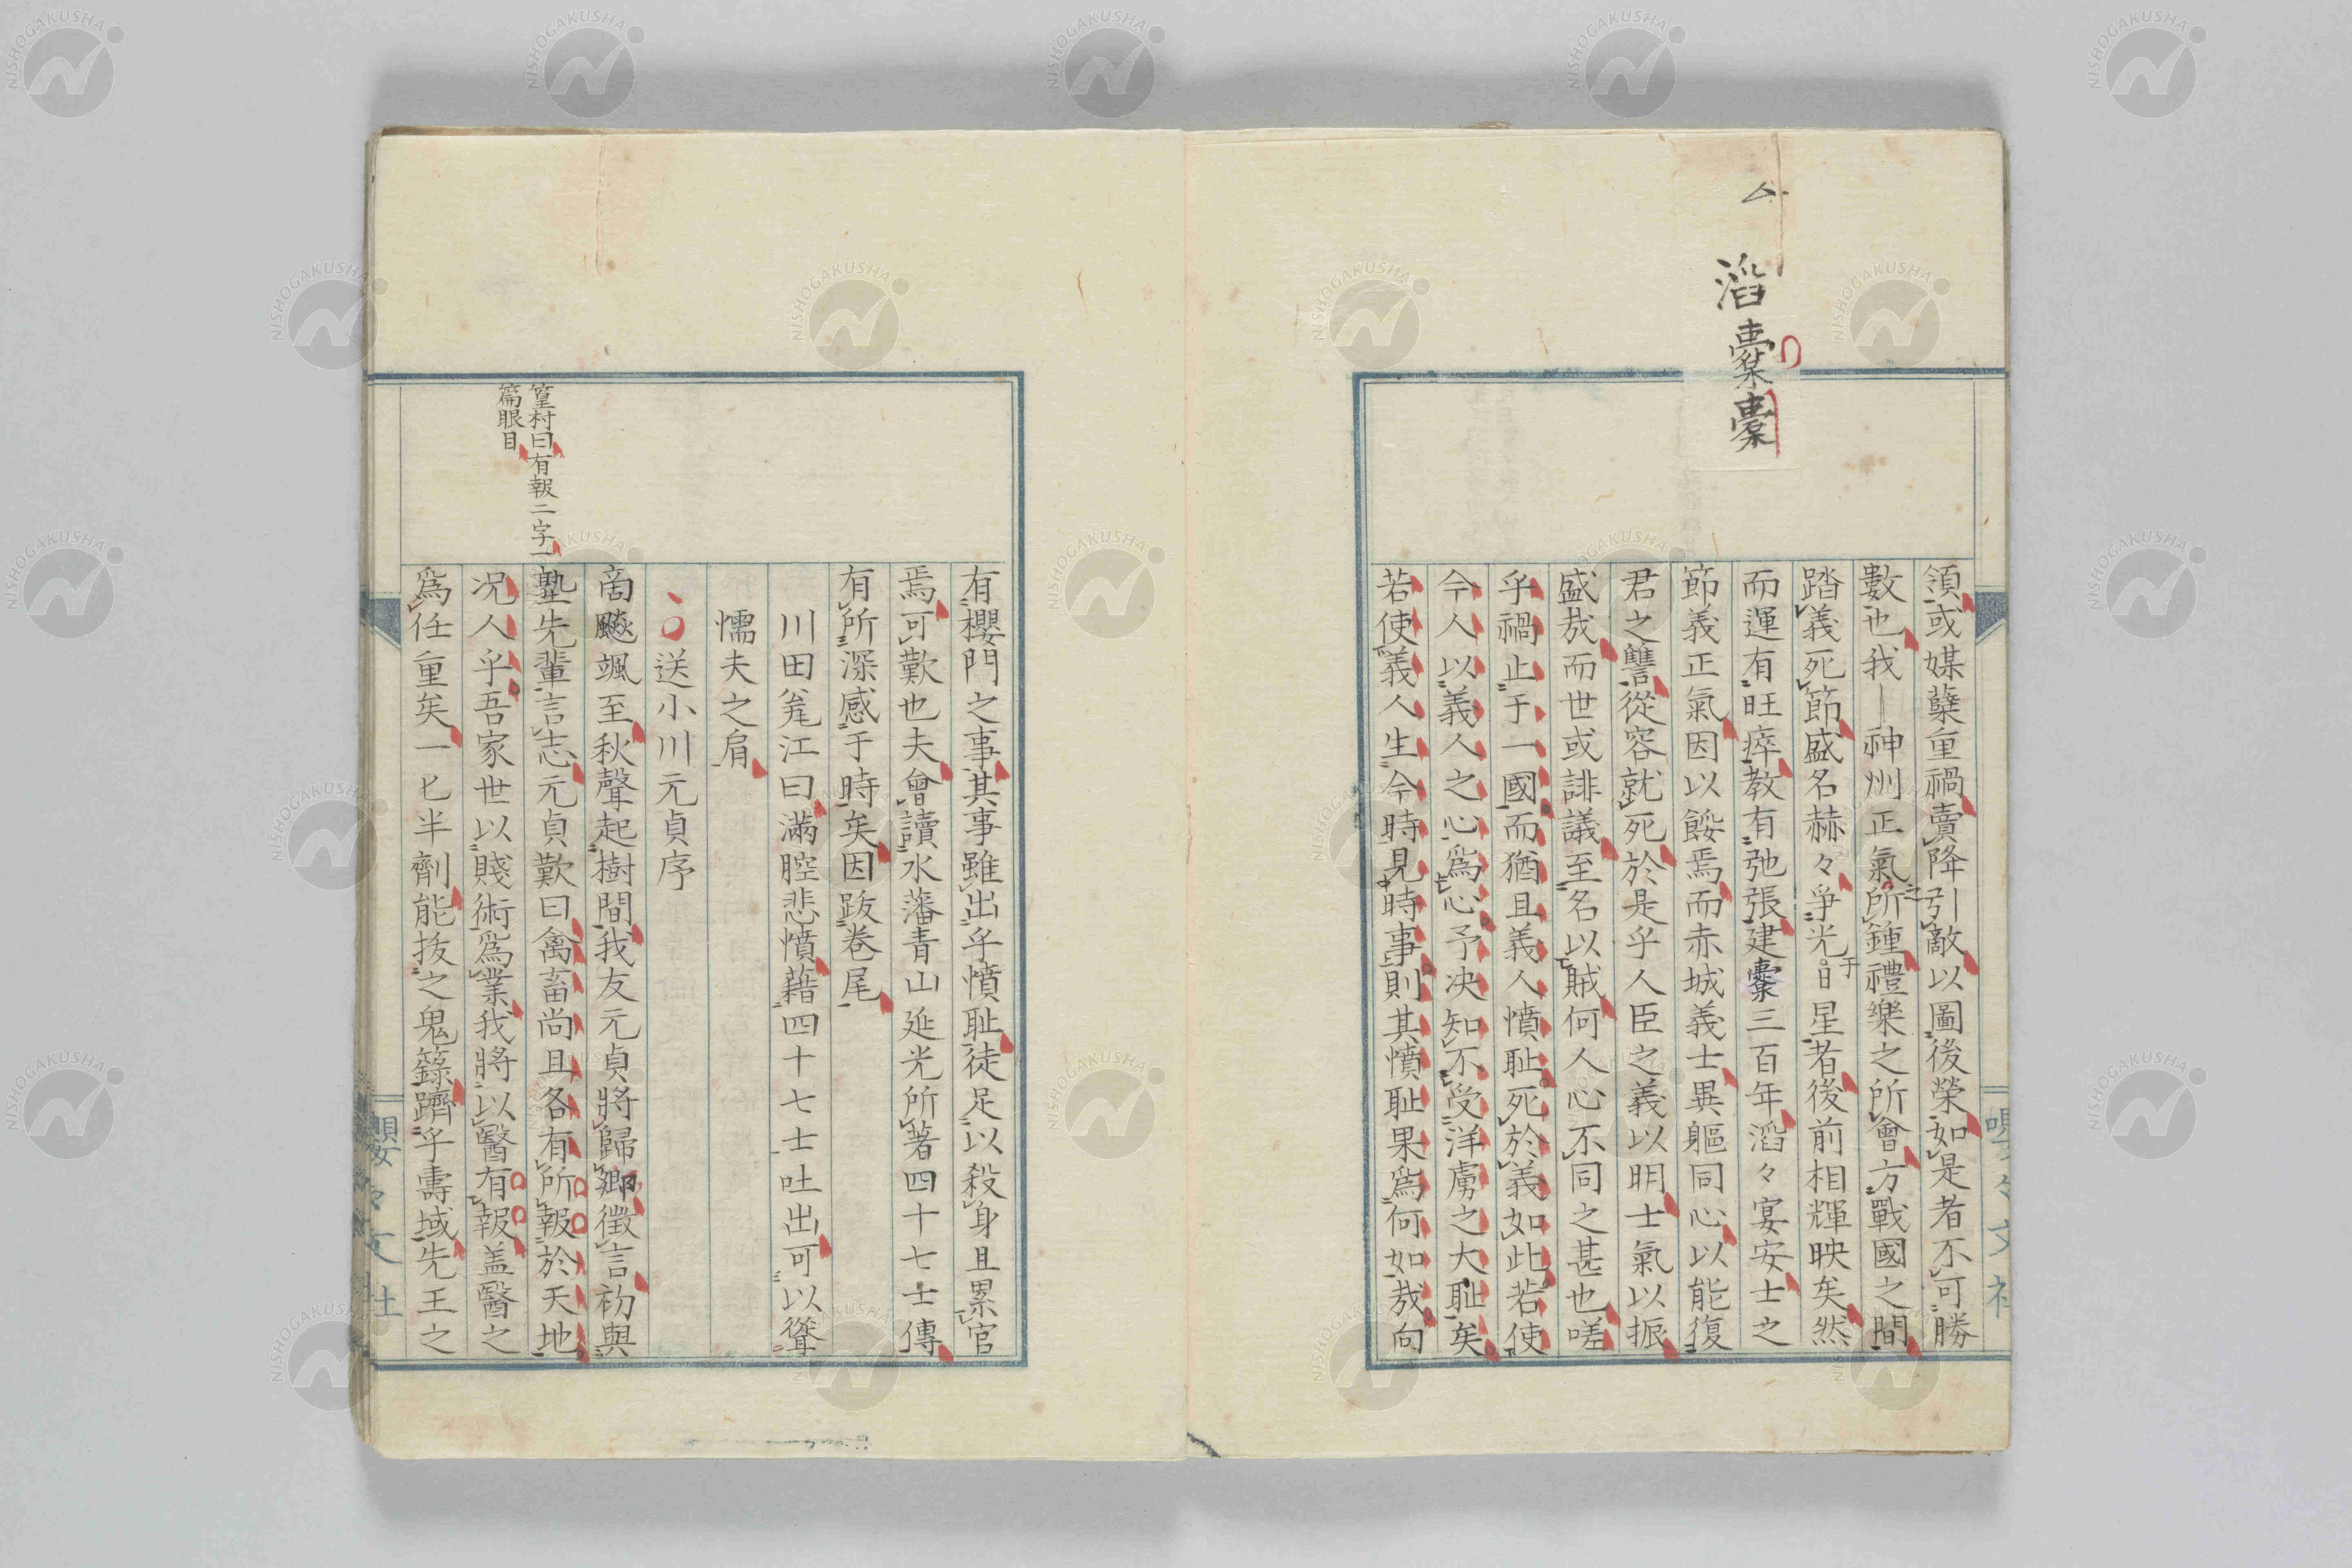 滔
櫜
櫜
領或媒蘖重禍賣降引敵以圖後榮如是者不可勝
數也我神州正氣之所鍾禮樂之所會方戰國之間
踏義死節盛名赫々爭光于日星者後前相輝映矣然
而運有旺瘁教有弛張建櫜三百年滔々宴安士之
節義正氣因以餒焉而赤城義士異軀同心以能復
君之讐從容就死於是乎人臣之義以明士氣以振
盛哉而世或誹議至名以賊何人心不同之甚也嗟
乎禍止于一國而猶且義人憤耻死於義如此若使
今人以義人之心為心予决知不受洋虜之大耻矣
若使義人生今時見時事則其憤耻果為何如哉向
有櫻門之事其事雖出乎憤耻徒足以殺身且累官
焉可歎也夫會讀水藩青山延光所著四十七士傳
有所深感于時矣因跋卷尾
川田甕江曰滿腔悲憤藉四十七士吐出可以聳
懦夫之肩
送小川元貞序
商飈颯至秋聲起樹間我友元貞將歸鄉徵言初與
塾先輩言志元貞歎曰禽畜尚且各有所報於天地
况人乎吾家世以賤術為業我將以醫有報盖醫之
為任重矣一匕半劑能拔之鬼籙躋乎壽域先王之
篁村曰有報二字一
篇眼目
嚶々文社
NISHOGAKUSHA